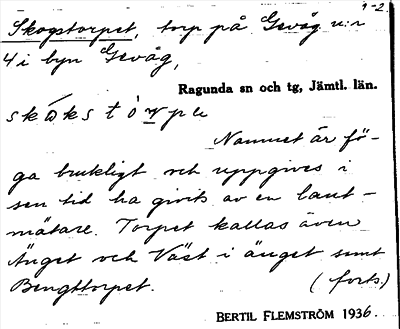 1-2
Skogstorpet, torp på Gevåg n:r
4 i byn Gevåg,
Ragunda sn och tg, Jämtl. län.
Namnet är fö-
ga brukligt och uppgives i
sen tid ha givits av en lant-
mätare. Torpet kallas även
Änget och Väst i änget samt
Bengttorpet. (forts.)
BERTIL FLEMSTRÖM 1936.